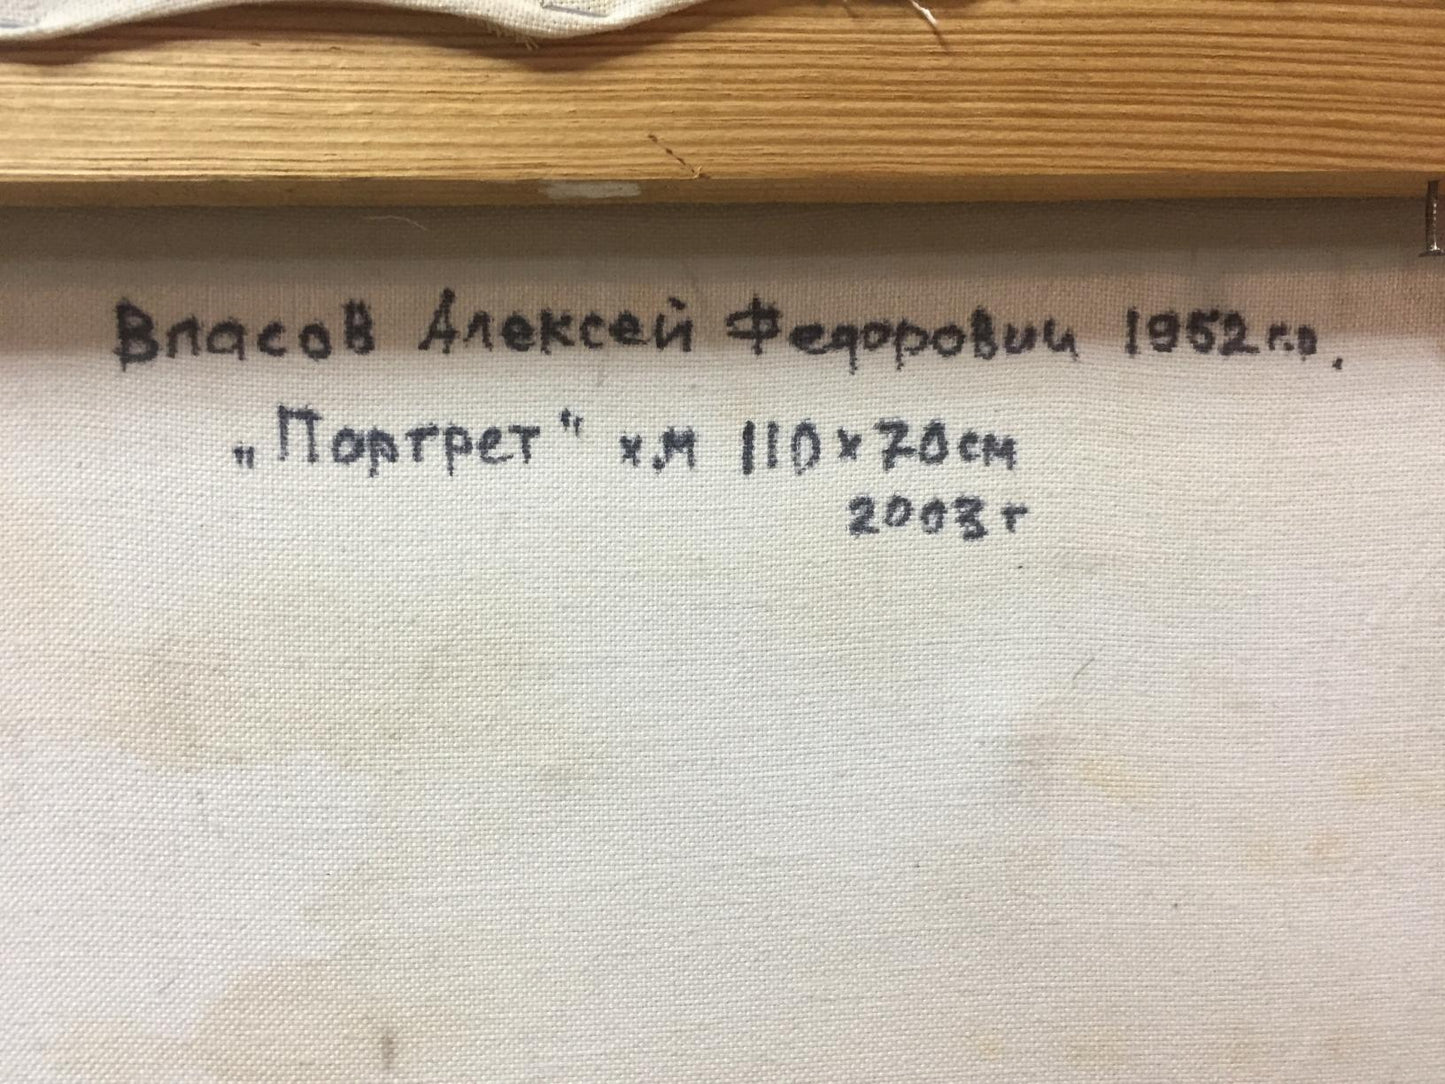 Власов Алексей Федорович 1952 г.р.
„Портрет" х.м 110 х 70 см
2003 г